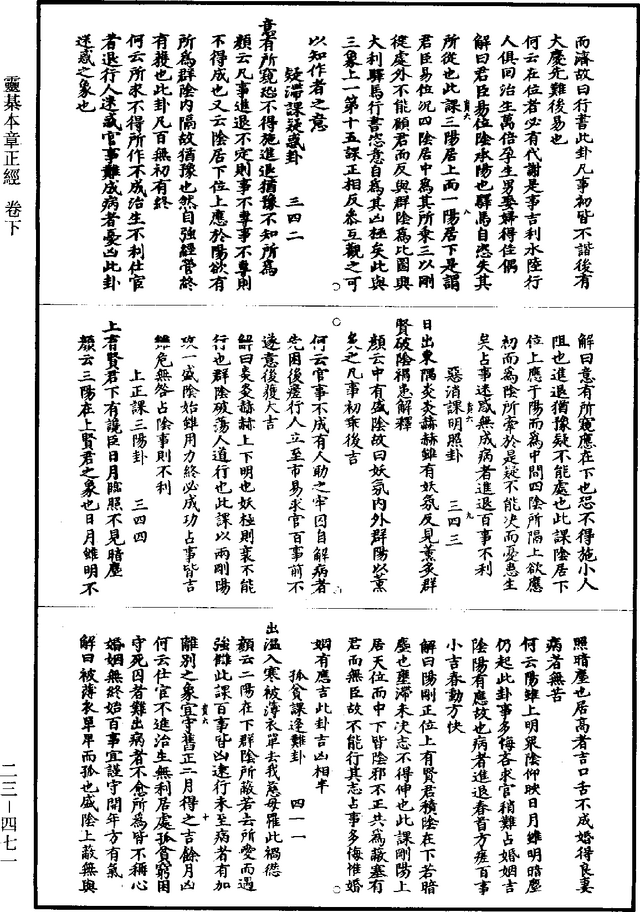 而濟故曰行書此卦凡事初皆不諧後有
大慶先難後易也
何云在位者必有代謝是事吉利水陸行
人俱回治生萬倍孕生男娶婦得佳偶
解曰君臣易位陰承陽也驛馬自恣失其
所從也此課三陽居上而一陽居下是謂
君臣易位況四陰居中為其所乘三以剛
從處外不能顧君而反與群陰為比固與
大利驛馬行書恣意自為其凶極矣此與
三象上一第十五課正相反參互觀之可
以知作者之意
疑滯課疑惑卦 三四二
意有所窺恐不得施進退猶豫不知所為
顏云凡事進退不定則事不專事不專則
不得成也又云陰居下位上應於陽欲有
所為群陰內隔故猶豫也然自強經管終
有獲也此卦凡百無初有終
何云所求不得所作不成治生不利仕官
者退行人迷惑官事難成病者憂凶此卦
迷惑之象也
靈棊本章正經 卷下
二三—四七一
解曰意有所窺應在下也恐不得施小人
阻也進退猶豫疑不能處也此課陰居下
位上應于陽而為中間四陰所隔上欲應
初而為陰所牽於是疑不能決而憂患生
矣占事迷惑無成病者進退百事不利
惡消課明照卦 三四三
日出東隅炎炎赫赫雖有妖氛反見薰炙群
賢破陰禍患解釋
顏云中有盛陰故曰妖氛內外群陽以薰
炙之凡事初乖後吉
何云官事不成有人助之牢囚自解病者
先困後瘥行人立至市易求官百事前不
遂意後獲大吉
解曰炎炎赫赫上下明也妖極則棄不能
行也群陰破蕩人道行也此課以兩剛陽
攻一盛陰始雖用力終必成功占事皆吉
雖危無咎占陰事則不利
上正課三陽卦 三四四
上有賢君下有讒臣日月臨照不見暗塵
顏云三陽在上賢君之象也日月雖明不
照暗塵也居高者吉口舌不成婚得良妻
病者無苦
何云陽雖上明衆陰仰映日月雖明暗塵
仍起此卦事多悔吝求官稍難占婚姻吉
陰陽有應故也病者進退春首方瘥百事
小吉春動方快
解曰陽剛正位上有賢君積陰在下若暗
塵也壅滯未決志不得伸也此課剛陽上
居天位而中下皆陰邪不正共為蔽塞有
君而無臣故不能行其志占事多悔惟婚
姻有應吉此卦吉凶相半
孤貧課逢難卦 四一一
出溫入寒被薄衣單去我慈母罹此禍愆
顏云二陽在下群陰所蔽若去所愛而遇
強讎此課百事皆凶遠行未至病者有加
離別之象宜守舊正二月得之吉餘月凶
何云仕官不進治生無利居處孤貧窮困
守死囚者難出病者不愈所為皆不稱心
婚姻無終始百事宜謹守開年方有氣
解曰被薄衣單卑而孤也盛陰上蔽無與